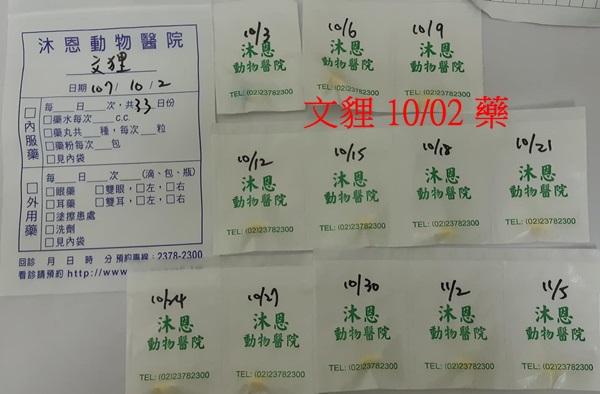 沐恩動物醫院
文狸
日期 107/ 10/ 2
□內服藥
每 日 次,共33日份
□藥水每次 c.c.
□藥丸共 種,每次 粒
□藥粉每次 包
□見內袋
□外用藥
每 日 次 (滴、包、瓶)
□眼藥 □雙眼,□左,□右
□耳藥 □雙耳,□左,□右
□塗擦患處
□洗劑
□見內袋
回診 月 日 時 分 預約專線:2378-2300
看診請預約 http://www
10/3
沐恩
動物醫院
TEL: (02)23782300
10/6
沐恩
動物醫院
TEL: (02)23782300
10/9
沐恩
動物醫院
TEL: (02)23782300
文貍 10/02 藥
10/12
沐恩
動物醫院
TEL: (02)23782300
10/15
沐恩
動物醫院
TEL: (02)23782300
10/18
沐恩
動物醫院
TEL: (02)23782300
10/21
沐恩
動物醫院
TEL: (02)23782300
10/24
沐恩
動物醫院
TEL: (02)23782300
10/27
沐恩
動物醫院
TEL: (02)23782300
10/30
沐恩
動物醫院
TEL: (02)23782300
11/2
沐恩
動物醫院
TEL: (02)23782300
11/5
沐恩
動物醫院
TEL: (02)23782300